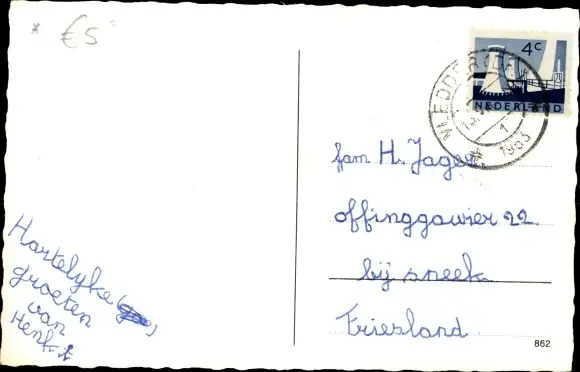 * €5
4c
NEDERLAND
1963
fam H. Jager
offinggawier 22
bij sneek
Friesland
862
Hartelyke
groeten
van
Henk